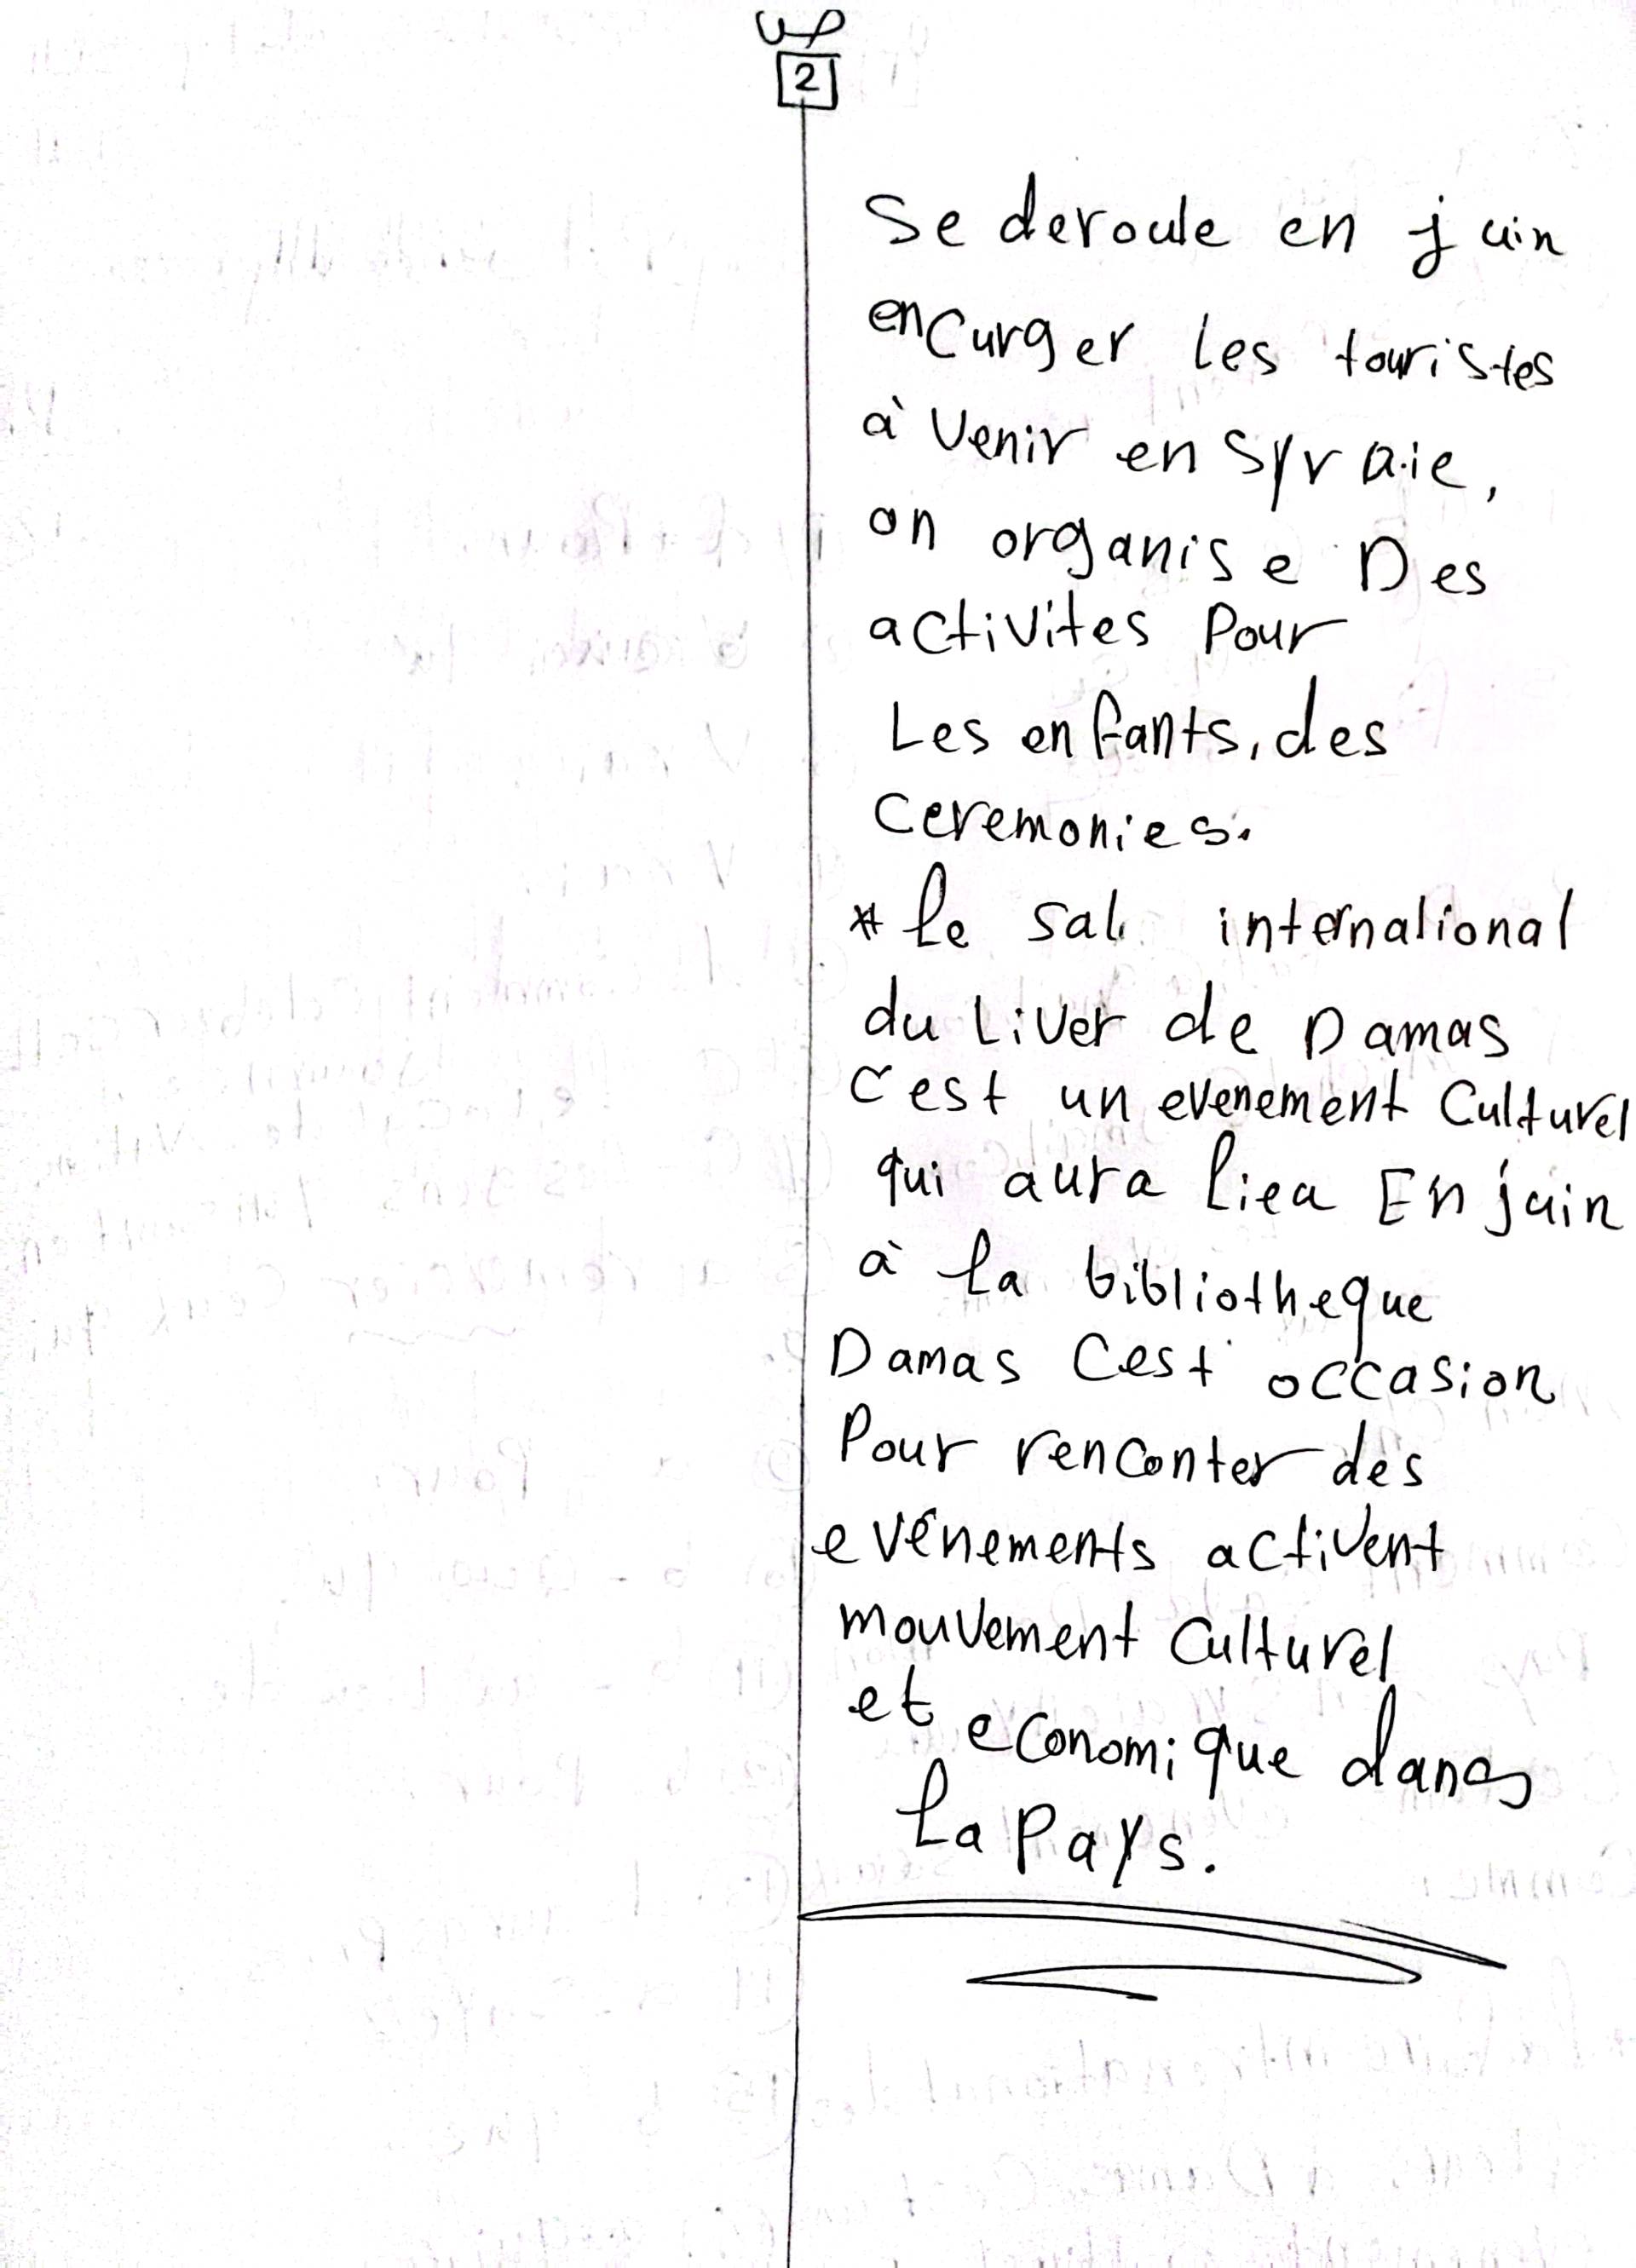 ص
2
Se deroule en juin
encurger les touristes
à Venir en Syraie,
on organise Des
activites Pour
Les enfants, des
Ceremonies.
* Le sal international
du Liver de Damas
c'est un evenement Culturel
qui aura liea En juin
à la bibliotheque
Damas Cest occasion
Pour renconter des
evénements activent
mouvement Culturel
et economique dans
La Pays.